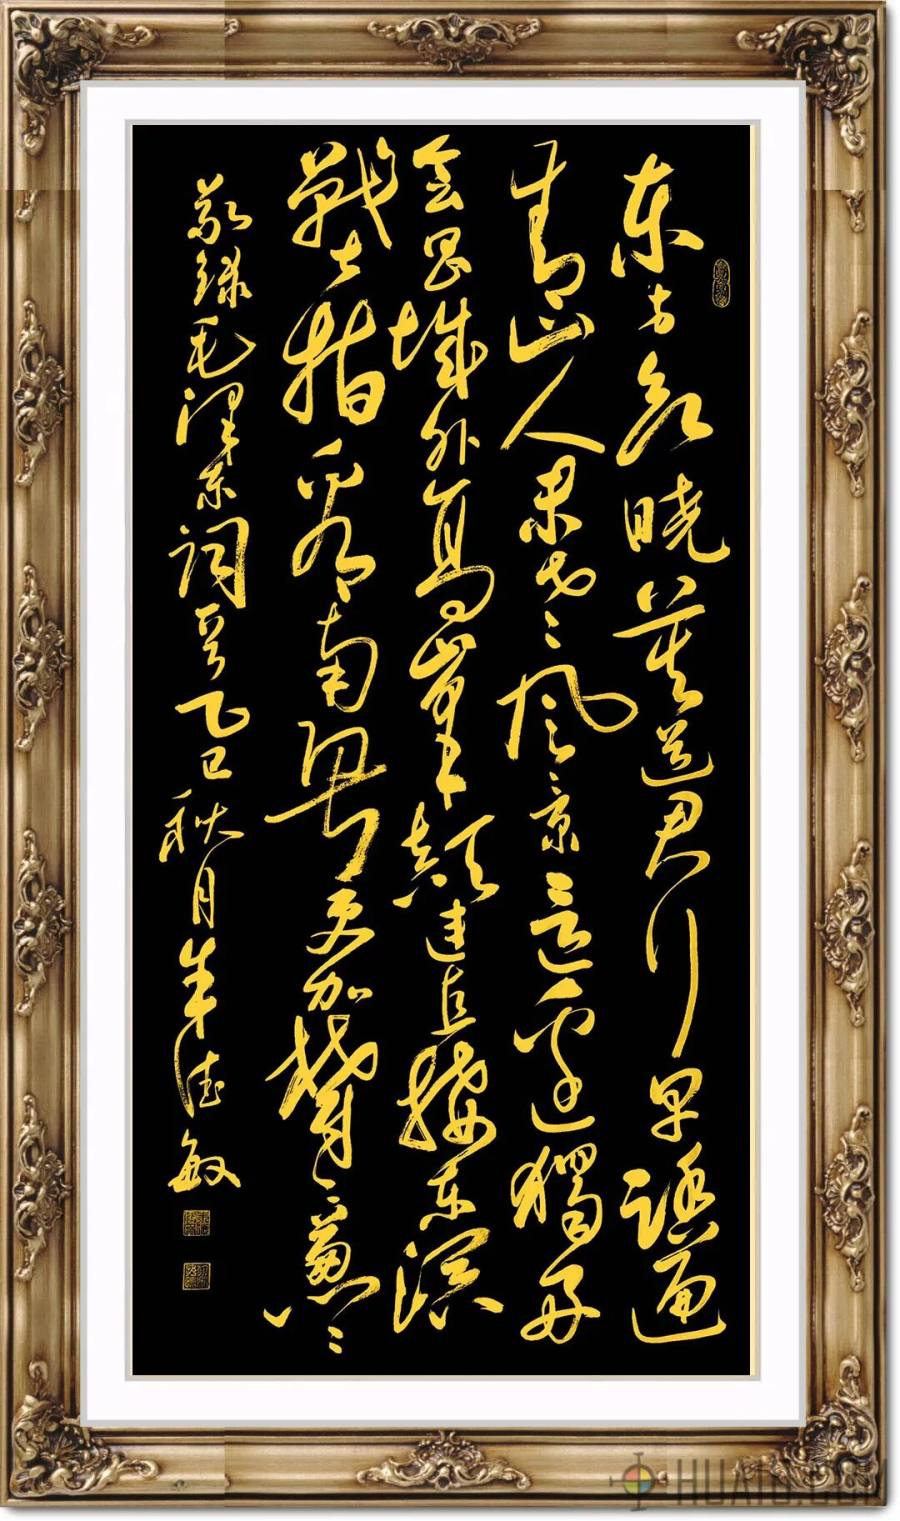 东方欲晓莫道君行早踏遍
青山人未老风景這邊獨好
会昌城外高峰颠连直接东溟
戰士指看南粤更加鬱〻葱〻
敬録毛泽东词乙巳秋月朱德敏